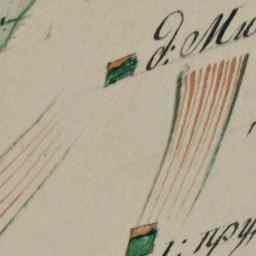 д: Ми
: пру